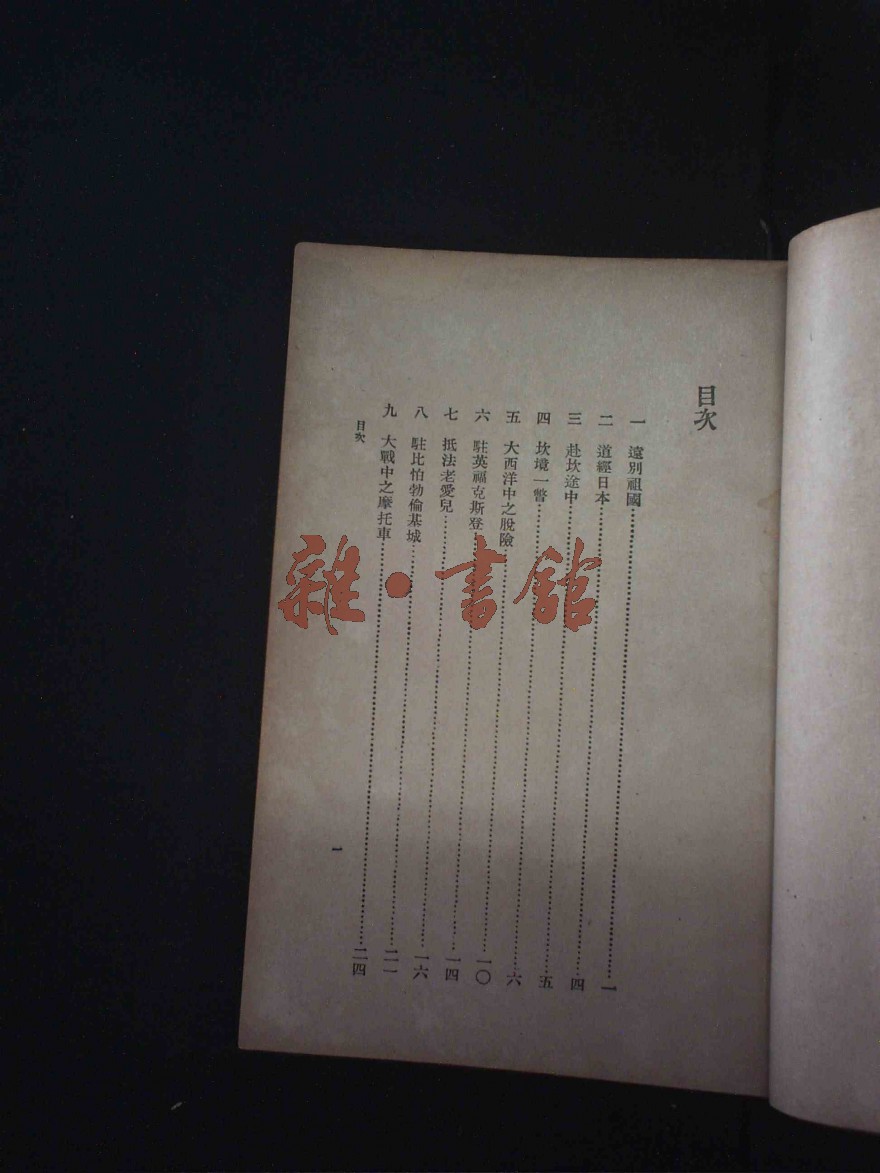 目次
一 遠別祖國 一
二 道經日本 四
三 赴坎途中 五
四 坎境一瞥 六
五 大西洋中之脫險 一〇
六 駐英福克斯登 一四
七 抵法老愛兒 一六
八 駐比怕勃倫基城 二一
九 大戰中之摩托車 二四
目次
一
雜·書館